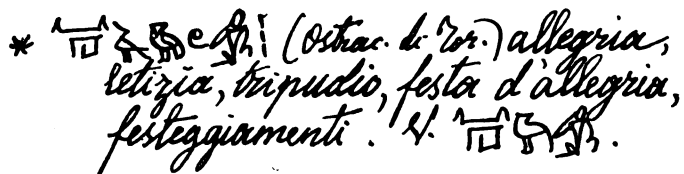 * (Ostrac. di Tor.) allegria,
letizia, tripudio, festa d'allegria,
festeggiamenti. V.